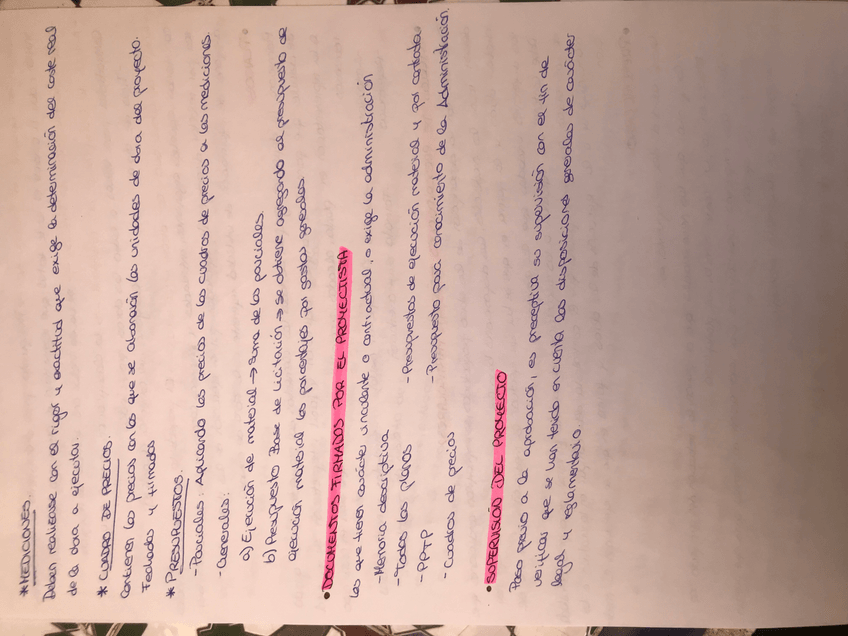 * MEDICIONES.
Deben realizarse con el rigor y exactitud que exige la determinación del coste real
de la obra a ejecutar.
* CUADRO DE PRECIOS.
Contienen los precios con los que se abonarán las unidades de obra del proyecto.
Fechados y firmados
* PRESUPUESTOS.
- Parciales: Aplicando los precios de los cuadros de precios a las mediciones.
- Generales:
a) Ejecución de material → Suma de los parciales.
b) Presupuesto Base de Licitación → se obtiene agregando al presupuesto de
ejecución material los porcentajes por gastos generales
• DOCUMENTOS FIRMADOS POR EL PROYECTISTA
Los que tienen carácter vinculante o contractual, o exige la administración
- Memoria descriptiva
- Todos los planos
- PPTP
- Cuadros de precios
- Presupuestos de ejecución material y por contrata
- Presupuesto para conocimiento de la Administración.
• SUPERVISIÓN DEL PROYECTO
Paso previo a la aprobación, es preceptiva su supervisión con el fin de
verificar que se han tenido en cuenta las disposiciones generales de carácter
legal y reglamentario.